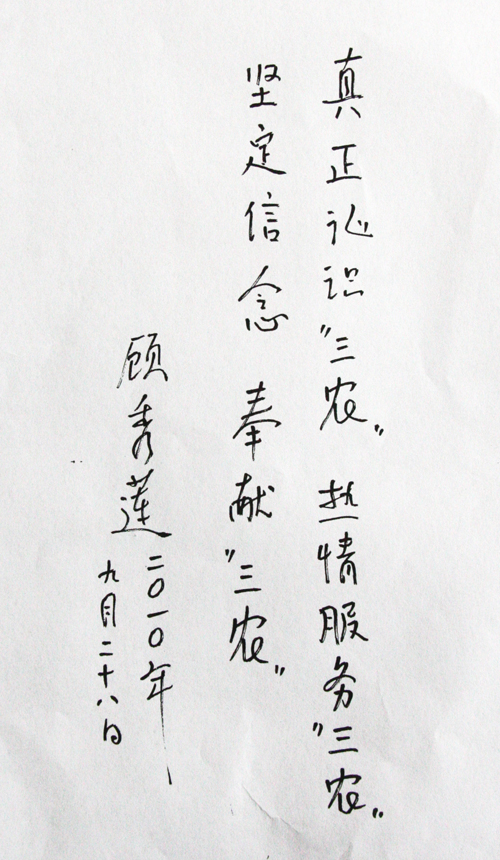 真正认识"三农"热情服务"三农"
坚定信念 奉献"三农"
顾秀莲
二〇一〇年
九月二十八日